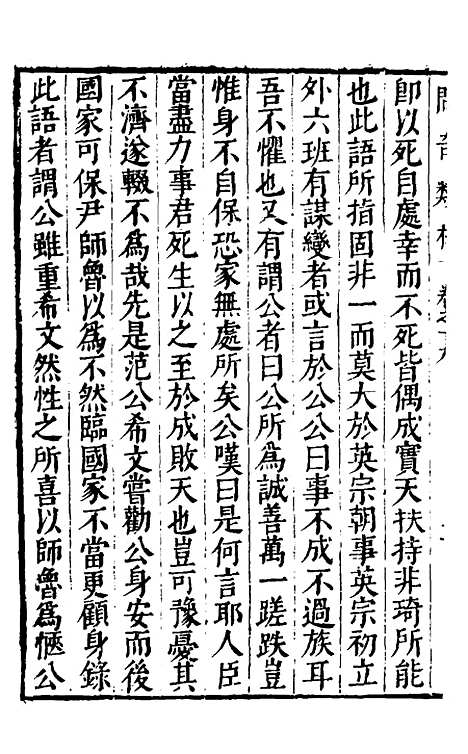 卽以死自處幸而不死皆偶成實天扶持非琦所能
也此語所指固非一而莫大於英宗朝事英宗初立
外六班有謀變者或言於公公曰事不成不過族耳
吾不懼也又有謂公者曰公所為誠善萬一蹉跌豈
惟身不自保恐家無處所矣公嘆曰是何言耶人臣
當盡力事君死生以之至於成敗天也豈可豫憂其
不濟遂輟不爲哉先是范公希文嘗勸公身安而後
國家可保尹師魯以爲不然臨國家不當更顧身錄
此語者謂公雖重希文然性之所喜以師魯爲愜公